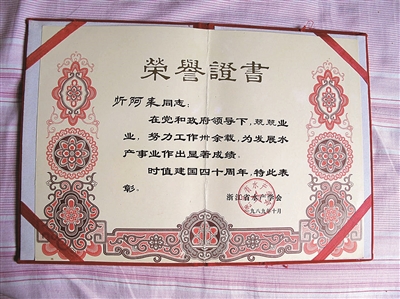 榮譽證書
忻阿来同志:
在党和政府领导下,兢兢业
业、努力工作卅余载,为发展水
产事业作出显著成绩。
时值建国四十周年,特此表
彰。
浙江省水产学会
一九八九年十月